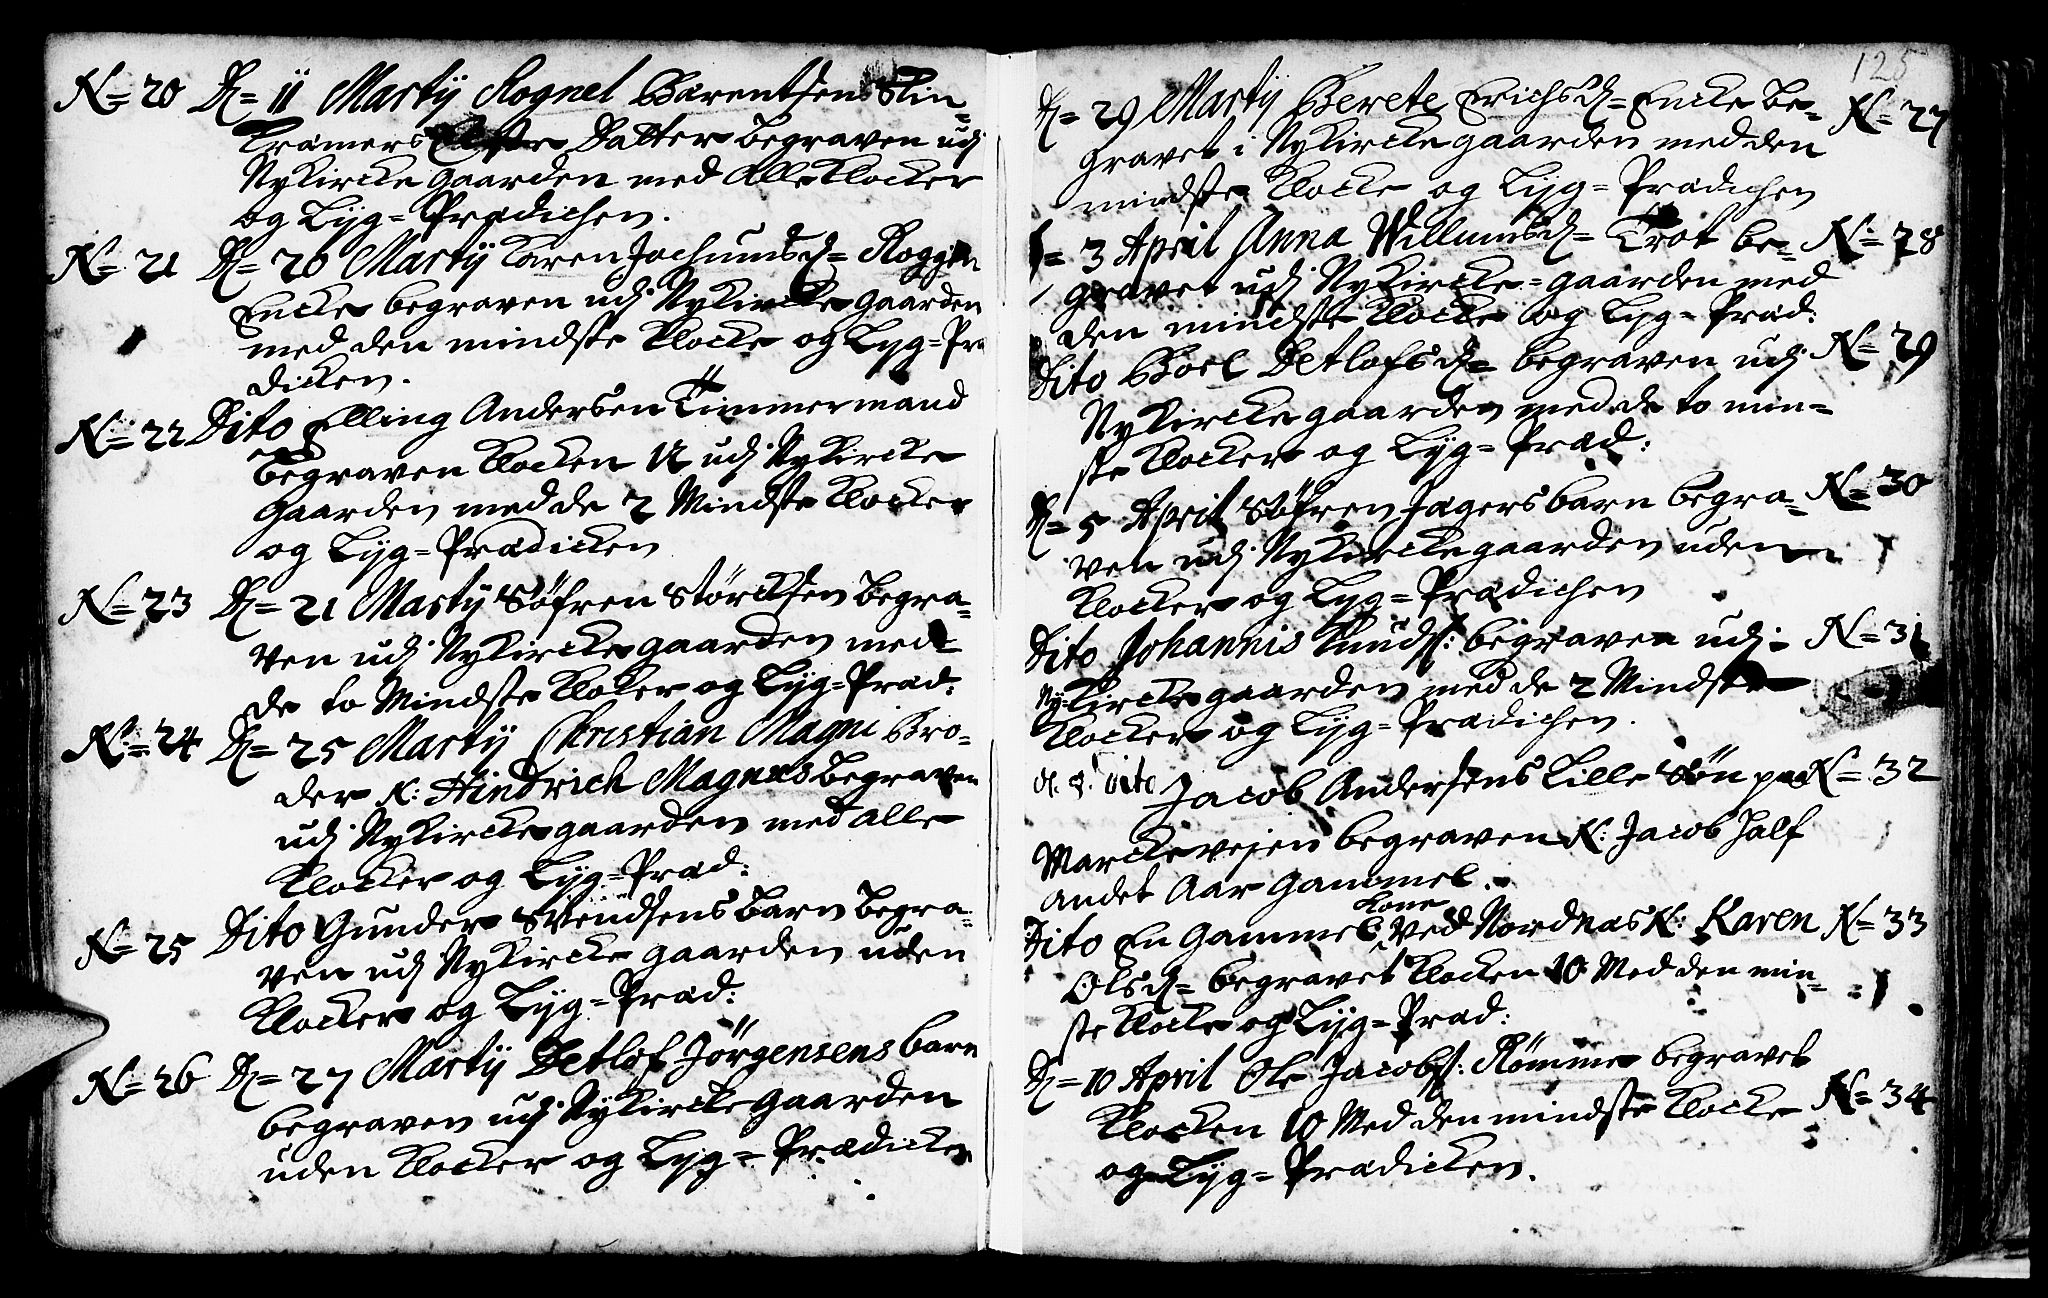 N= 20 D= 11 Martÿ Rognel Barentsen Skin=
Kramers Datter begraven udj
Nykircke gaarden med Alle Klocker
og Lÿg=Prædichen.
N= 21 D= 20 Martÿ Karen Jochumsd= Roggen
Encke begraven udj Nykircke gaarden
med den mindste Klocke og Lyg=Præ
dicken.
N= 22 Dito Elling Andersen Timmermand
Begraven Klocken 12 udj Nykircke
Gaarden med de 2 Mindste Klocker
og Lÿg=Prædicken
N= 23 D= 21 Martÿ Söfren Störcksen Begra=
ven udj Nykircke gaarden med
de to Mindste Klocker og Lÿg=Præd:
N= 24 D= 25 Martÿ Christian Magni Bro=
der N: Hindrich Magnus Begraven
udj Nykircke gaarden med alle
Klocker og Lÿg=Præd:
N= 25 Dito Gunder Svendsens Barn Begra=
ven udj Nykircke gaarden uden
Klocker og Lÿg=Præd:
N= 26 D= 27 Martÿ Detlof Jörgensens barn
begraven udj Nÿkircke Gaarden
uden Klocker og Lyg=Prædicken
125
D= 29 Martÿ Berete Erichsd= Encke be= N= 27
gravet i Nykircke gaarden med den
mindste Klocke og Lÿg=Prædichen
D= 3 April Anna Willumsd= Trot be= N= 28
gravet udj Nykircke=gaarden med
den mindste Klocke og Lyg=Præd:
Dito Boel Detlofsd= begraven udj N= 29
Nykircke gaarden med de to min=
ste Klocker og Lÿg=Præd:
D= 5 April Söfren Jagers barn begra= N= 30
ven udj Nykircke gaarden uden
Klocker og Lÿg=Prædichen
Dito Johannis Knuds: begraven udj N= 31
Nÿkircke gaarden med de 2 Mindste
Klocker og Lÿg=Prædichen.
dito Jacob Andersens Lille Sön paa N= 32
Marckevejen begraven N: Jacob Half
andet Aar Gammel.
Dito En Gammel Kone ved Nordnæs N: Karen N= 33
Olsd= begravet Klocken 10 Med den min=
ste Klocke og Lÿg=Præd:
D= 10 April Ole Jacobs: Römme begravet N= 34
Klocken 10 Med den mindste Klocke
og Lÿg=Prædicken.